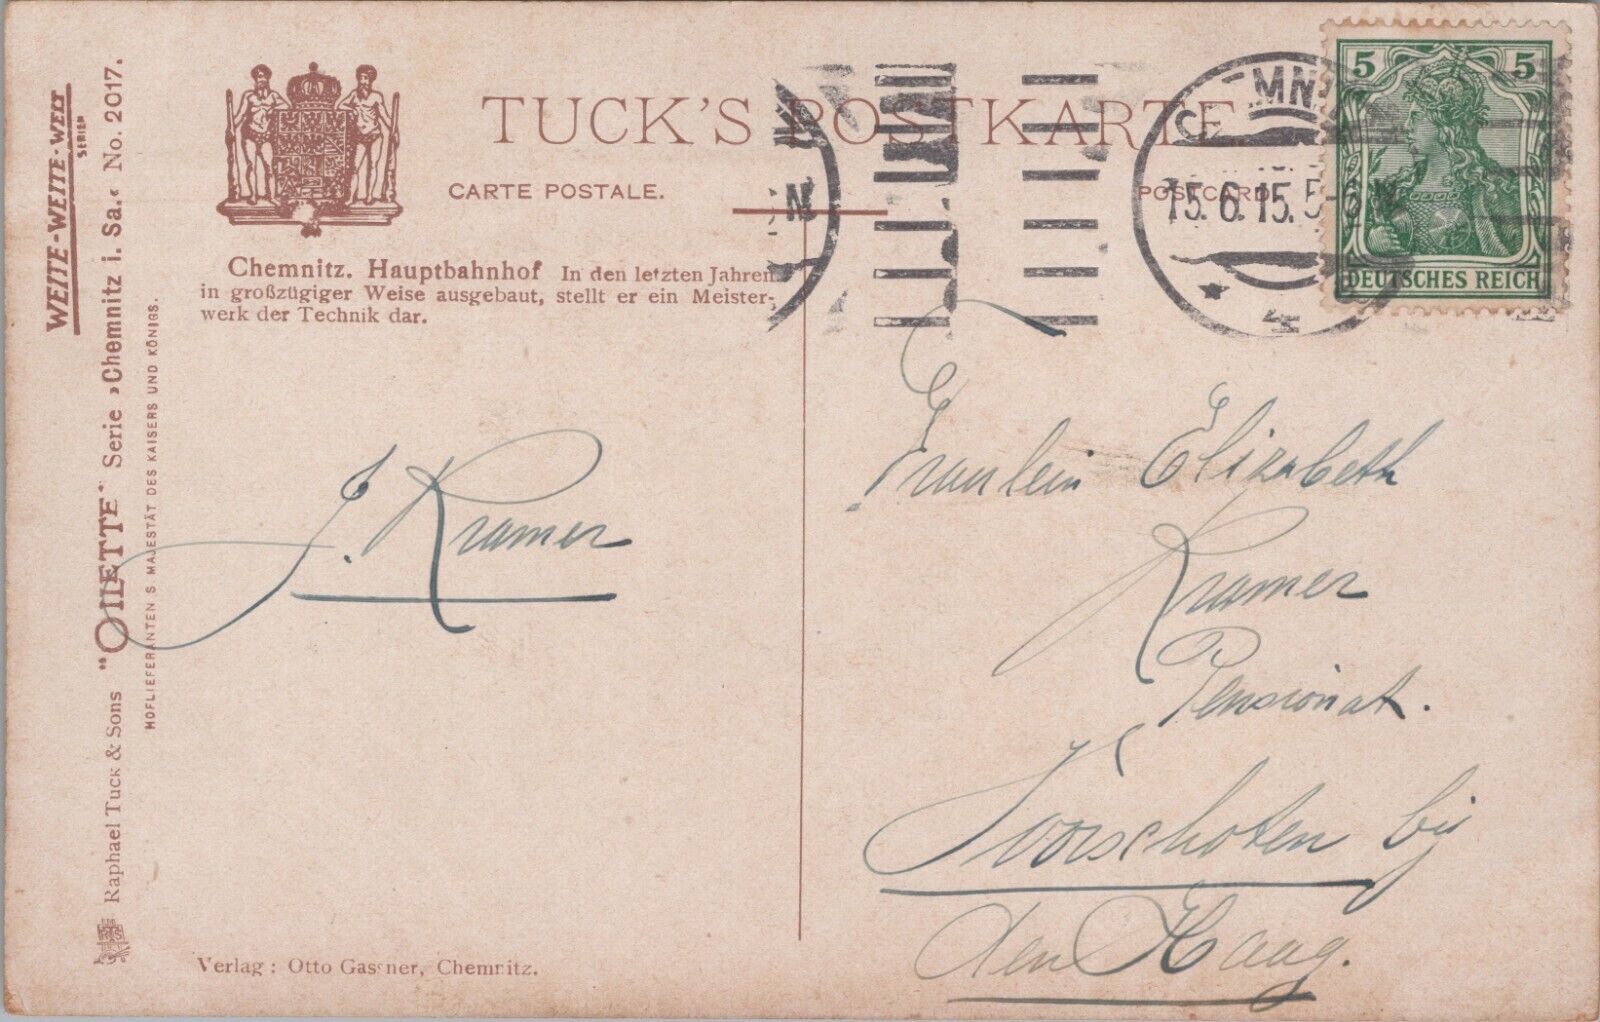 TUCK'S POSTKARTE
CARTE POSTALE.
POSTCARD.
Chemnitz. Hauptbahnhof In den letzten Jahren
in großzügiger Weise ausgebaut, stellt er ein Meister-
werk der Technik dar.
WEITE-WEITE-WELT
SERIE
Raphael Tuck & Sons "OILETTE" Serie »Chemnitz i. Sa.« No. 2017.
HOFLIEFERANTEN S MAJESTÄT DES KAISERS UND KÖNIGS.
J. Kramer
Verlag: Otto Gassner, Chemnitz.
15.6.15.5-6 N
4
5 5
DEUTSCHES REICH
Fraulein Elizabeth
Kramer
Pensionat.
Voorschoten bij
den Haag.